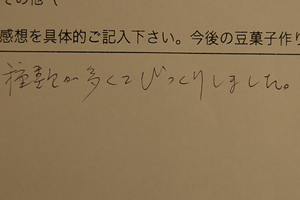 その他（
感想を具体的ご記入下さい。今後の豆菓子作り
種類が多くてびっくりしました。